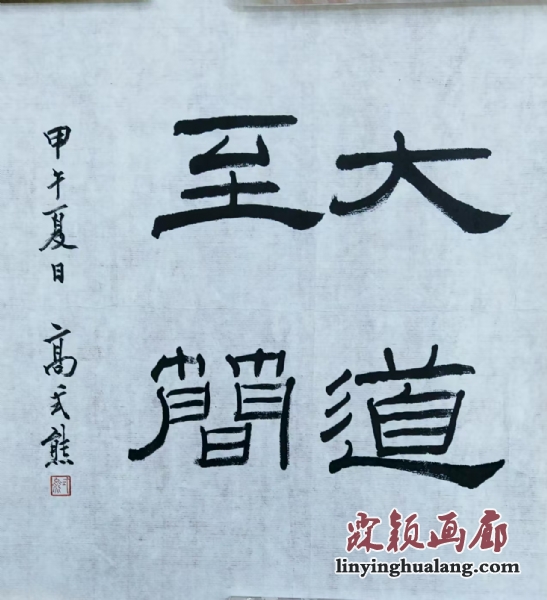 大道
至簡
甲午夏日 高式熊
霖颖画廊
linyinghualang.com